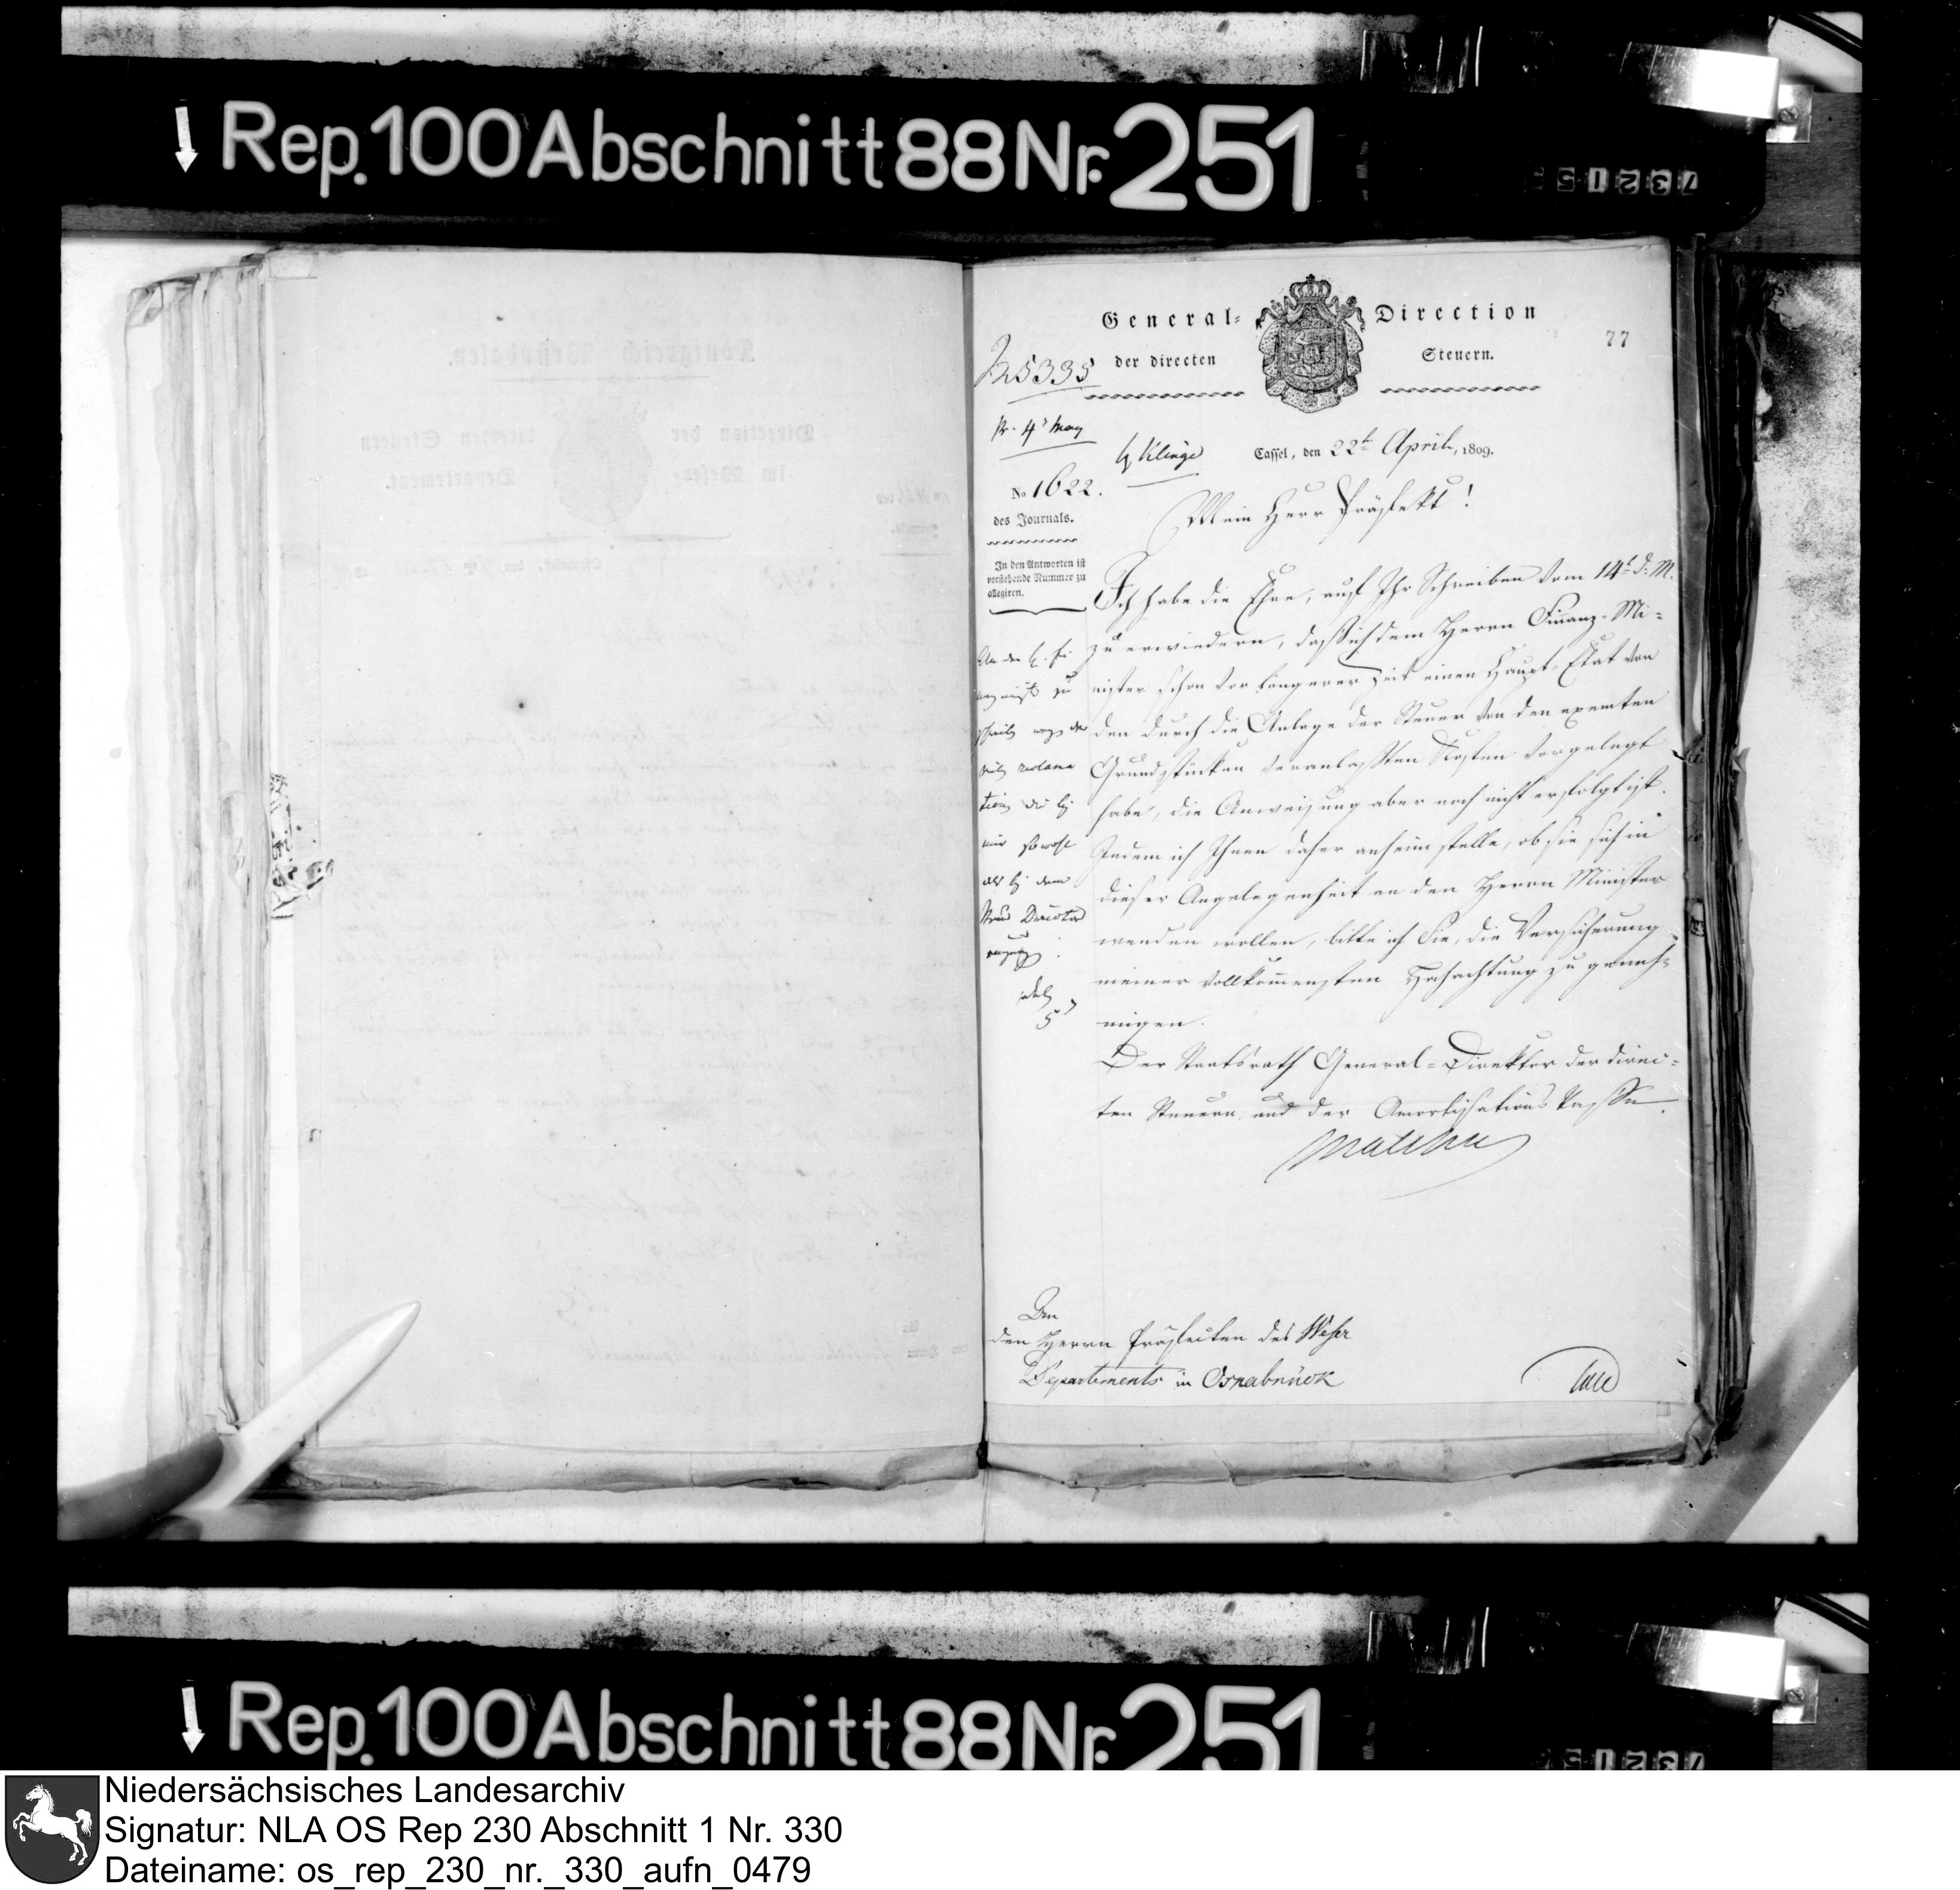 Rep. 100 Abschnitt 88 Nr. 251
General- Direction
der directen Steuern.
77
5335
pr. 4t May
Cassel, den 22t April, 1809.
No 1622.
des Journals.
In den Antworten ist
vorstehende Nummer zu
allegiren.
Mein Herr Präfekt!
Ich habe die Ehre, auf Ihr Schreiben vom 14t d. M.
zu erwiedern, daß ich dem Herrn Finanz-Mi-
nister schon vor längerer Zeit einen Haupt-Etat von
den durch die Anlage der Steuer von den exemten
Grundstücken veranlaßten Kosten vorgelegt
habe, die Anweisung aber noch nicht erfolgt ist.
Indem ich Ihnen daher anheim stelle, ob sie sich in
dieser Angelegenheit an den Herrn Minister
wenden wollen, bitte ich Sie, die Versicherung
meiner vollkommensten Hochachtung zu geneh-
migen.
Der Staatsrath General-Direktor der direc-
ten Steuern und der Amortisations Casse.
Malchus
mir sowohl
als bey dem
Steuer Director
An
den Herrn Präfecten des Weser
Departements in Osnabrück
Rep. 100 Abschnitt 88 Nr. 251
Niedersächsisches Landesarchiv
Signatur: NLA OS Rep 230 Abschnitt 1 Nr. 330
Dateiname: os_rep_230_nr._330_aufn_0479